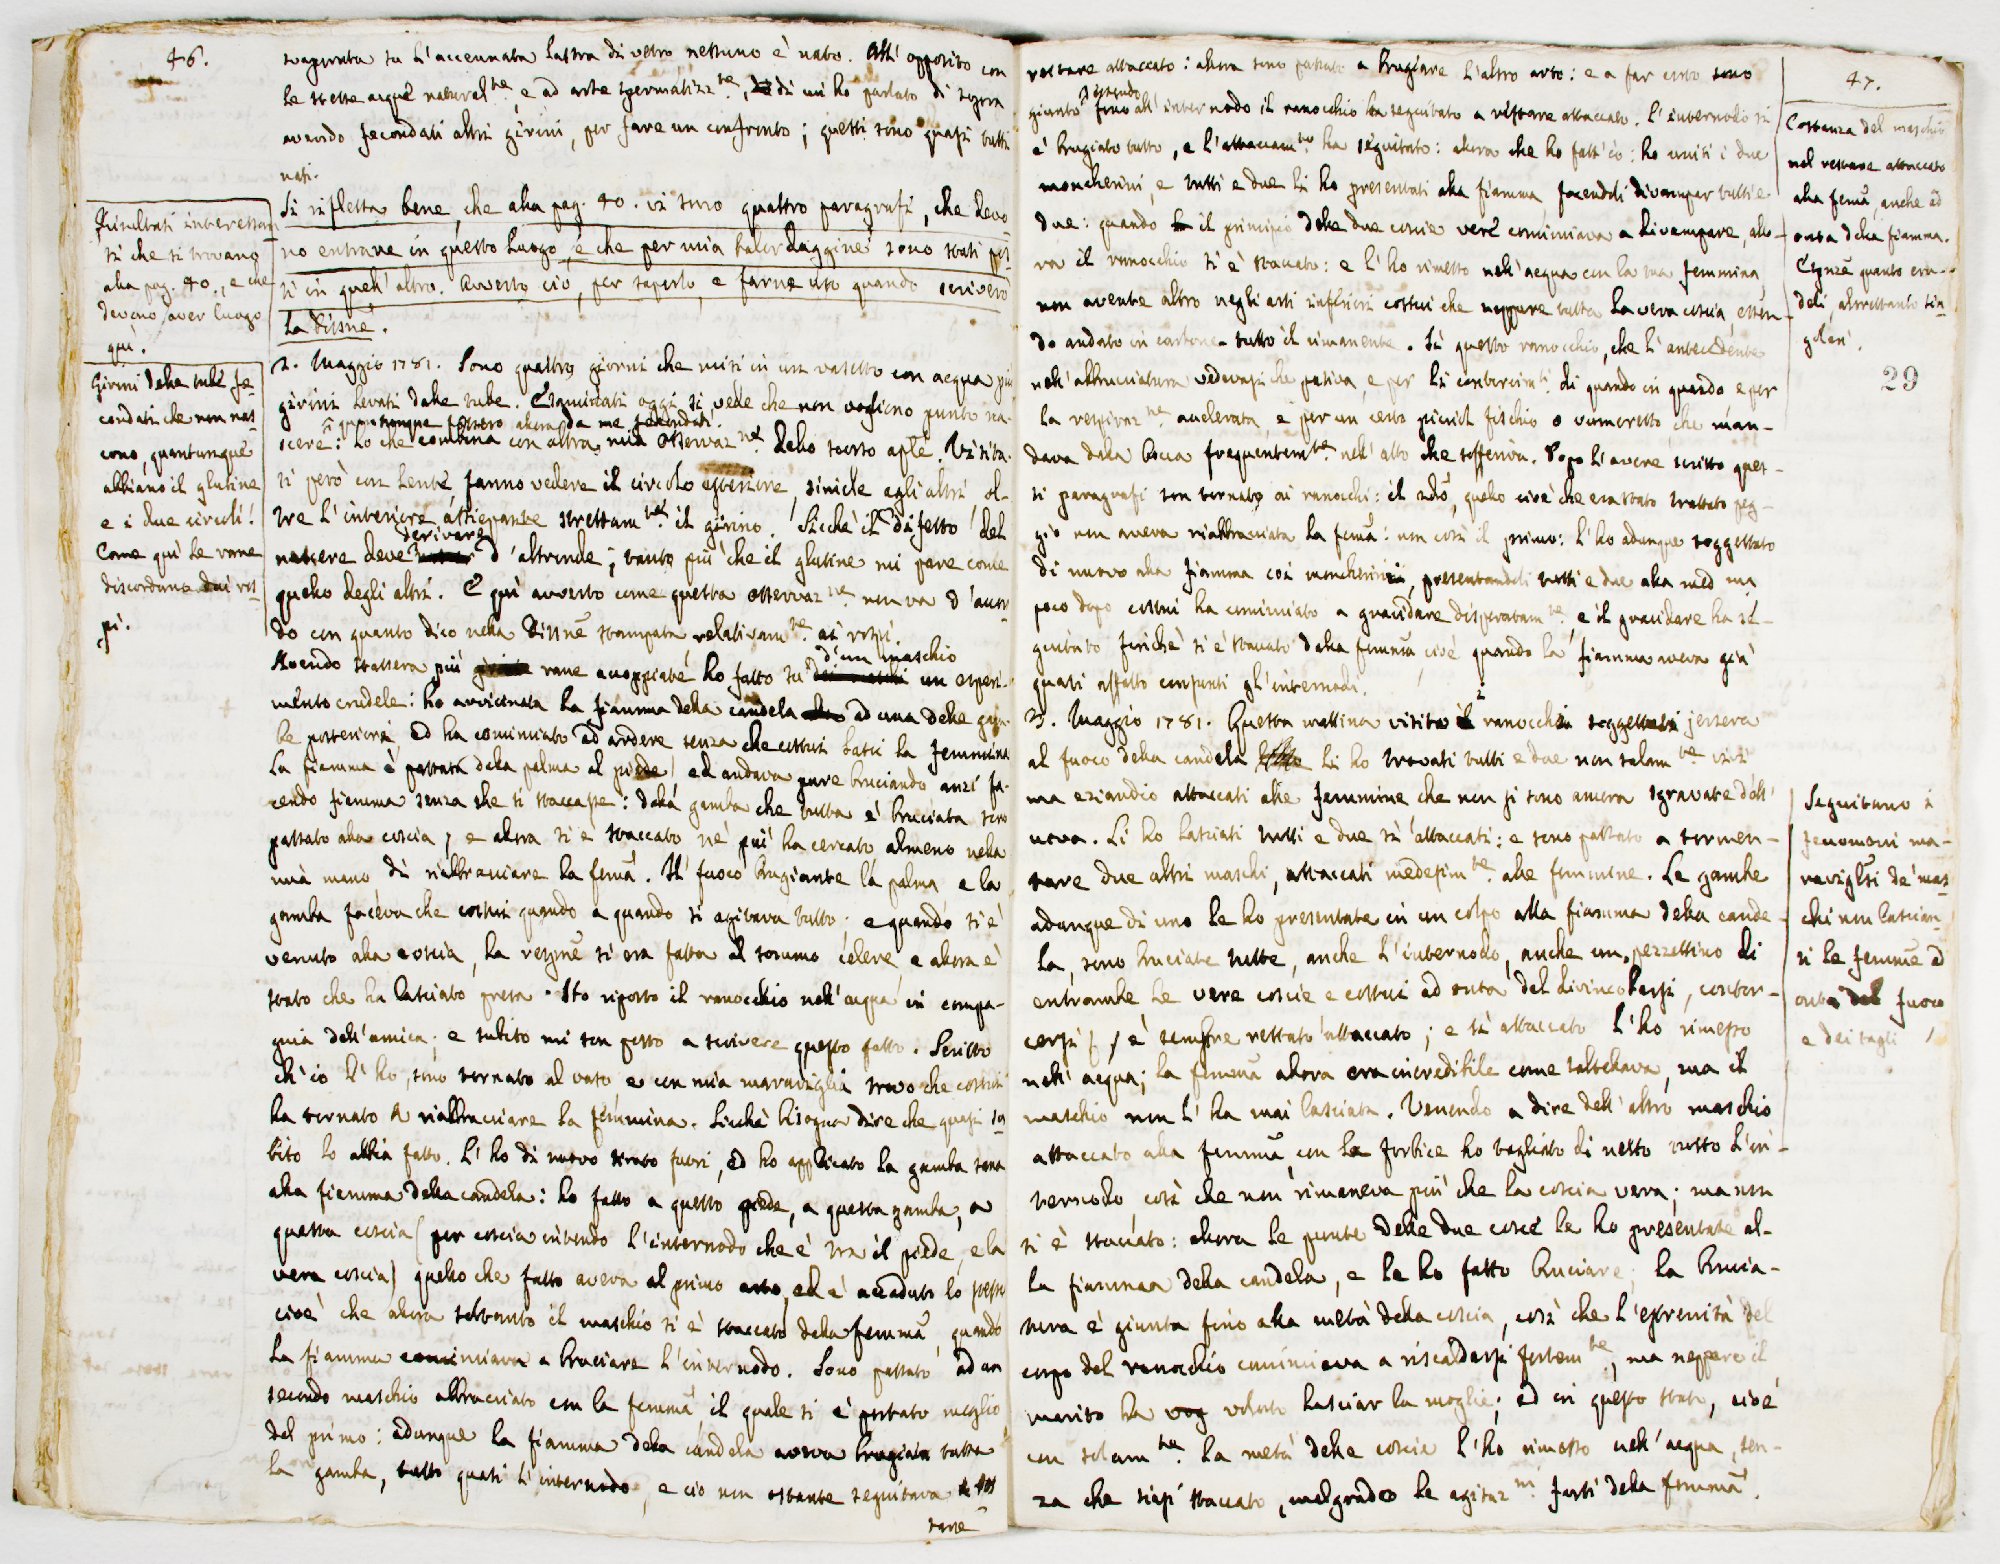 46.
su l'accennata lastra di vetro nessuno è nato. All'opposito con
le stesse acque natural.te, e ad arte spermatizz.te, di cui ho parlato di sopra
avendo fecondati altri girini, per fare un confronto; questi sono quasi tutti
nati.
Si rifletta bene, che alla pag. 40. vi sono quattro paragrafi, che devo-
no entrare in questo luogo, e che per mia balordaggine sono stati pos-
ti in quell'altro. Avverto ciò, per saperlo, e farne uso quando scriverò
la Disne.
Risultati interessan
ti che si trovano
alla pag. 40., e che
devono aver luogo
quì.
2. Maggio 1781. Sono quattro giorni che misi in un vasetto con acqua più
girini levati dalle tube. Esaminati oggi si vede che non vogliono punto na-
quantunque fossero allora da me fecondati
scere: lo che combina con altra mia osservaz.ne dello scorso aple. Visita-
ti però con lente fanno vedere il circolo esteriore, simile agli altri, ol-
tre l'interiore attorniante strettam.te il girino. Sicchè il difetto del
derivare
nascere deve d'altronde; tanto più che il glutine mi pare come
quello degli altri. E quì avverto come questa osservaz.ne non va d'accor
do con quanto dico nella Disne stampata relativam.te ai rospi.
Girini delle tube fe-
condati che non nas-
cono, quantunque
abbiano il glutine
e i due circoli!
Come quì le rane
discordano dai ros-
pi.
d'un maschio
Avendo stassera più rane accoppiate ho fatto su un esperi-
mento crudele: ho avvicinata la fiamma della candela ad una delle gam
be posteriori, ed ha cominciato ad ardere senza che costui lasci la femmina
La fiamma è passata dalla palma al piede, ed andava pure bruciando anzi fa-
cendo fiamma senza che si staccasse: dalla gamba che tutta è bruciata sono
passato alla coscia, e allora si è staccato nè più ha cercato almeno nella
mia mano di riabbracciare la fema. Il fuoco brugiante la palma e la
gamba faceva che costui quando a quando si agitava tutto; e quando si è
venuto alla coscia, la respne si era fatta al sommo celere e allora è
stato che ha lasciato presa. Ho riposto il ranocchio nell'acqua in compa-
gnia dell'amica; e subito mi son posto a scrivere questo fatto. Scritto
ch'io l'ho, sono tornato al vaso e con mia maraviglia trovo che costui
ha tornato a riabbracciare la femmina. Sicchè bisogna dire che quasi su
bito lo abbia fatto. L'ho di nuovo tirato fuori, ed ho applicato la gamba sana
alla fiamma della candela: ho fatto a questo piede, a questa gamba, a
questa coscia (per coscia intendo l'internodo che è tra il piede, e la
vera coscia) quello che fatto aveva al primo arto, ed è accaduto lo stesso
cioè che allora soltanto il maschio si è staccato dalla femma, quando
la fiamma cominciava a bruciare l'internodo. Sono passato ad un
secondo maschio abbracciato con la femma, il quale si è portato meglio
del primo: adunque la fiamma della candela aveva brugiata tutta
la gamba, tutto quasi l'internodo, e ciò non ostante seguitava a res
tare
47.
restare attaccato: allora sono passato a brugiare l'altro arto: e a far ciò sono
giunto fino all'internodo il ranocchio ha seguitato a restare attaccato. L'internodo si
è brugiato tutto, e l'attaccam.to ha seguitato: allora che ho fatt'io: ho uniti i due
moncherini, e tutti e due li ho presentati alla fiamma facendoli divampar tutti e
due: quando il principio delle due coscie vere cominciava a divampare, allo-
ra il ranocchio si è staccato: e l'ho rimesso nell'acqua con la sua femmina,
non avente altro negli arti inferiori costui che neppure tutta la vera coscia, essen-
do andato in carbone tutto il rimanente. Sì questo ranocchio, che l'antecedente
nell'abbruciatura vedevasi che pativa, e per li contorcim.ti di quando in quando e per
la respiraz.ne accelerata, e per un certo piccol fischio o rumoretto che man-
dava dalla bocca frequentem.te nell'atto che soffriva. Dopo l'avere scritto ques-
ti paragrafi son tornato ai ranocchi: il sdo, quello cioè che era stato trattato peg-
gio non aveva riabbracciata la fema: non così il primo: l'ho adunque soggettato
di nuovo alla fiamma coi moncherini, presentandoli tutti e due alla med ma
poco dopo costui ha cominciato a gracidare disperatam.te, e il gracidare ha se-
guitato finchè si è staccato dalla femma, cioè quando la fiamma aveva già
quasi affatto consunti gl'internodi.
Costanza del maschio
nel restare attaccato
alla fema, anche ad
onta della fiamma.
Espnze quanto cru-
deli, altrettanto sin-
golari.
29
3. Maggio 1781. Questa mattina visito i 2 ranocchi soggettati jersera
al fuoco della candela li ho trovati tutti e due non solam.te vivi
ma eziandio attaccati alle femmine che non si sono ancora sgravate dell'
uova. Li ho lasciati tutti e due sì attaccati; e sono passato a tormen-
tare due altri maschi, attaccati medesim.te alle femmine. Le gambe
adunque di uno le ho presentate in un colpo alla fiamma della cande-
la, sono bruciate tutte, anche l'internodo, anche un pezzettino di
entrambe le vere coscie e costui ad onta del divincolarsi, contor-
cersi, è sempre restato attaccato; e sì attaccato l'ho rimesso
nell'acqua; la femma allora era incredibile come saltellava, ma il
maschio non l'ha mai lasciata. Venendo a dire dell'altro maschio
attaccato alla femma, con la forbice ho tagliato di netto tutto l'in-
ternodo, così che non rimaneva più che la coscia vera; ma non
si è staccato: allora le punte delle due coscie le ho presentate al-
la fiamma della candela, e le ho fatto bruciare; la brucia-
tura è giunta fino alla metà della coscia, così che l'estremità del
corpo del ranocchio cominciava a riscaldarsi fortem.te, ma neppure il
marito ha voluto lasciar la moglie; ed in questo stato, cioè
con solam.te la metà delle coscie l'ho rimesso nell'acqua, sen-
za che siasi staccato, malgrado le agitaz.ni forti della femma.
Seguitano i
fenomeni ma-
raviglsi de' mas-
chi non lascian-
ti le femme ad
onta del fuoco
e dei tagli